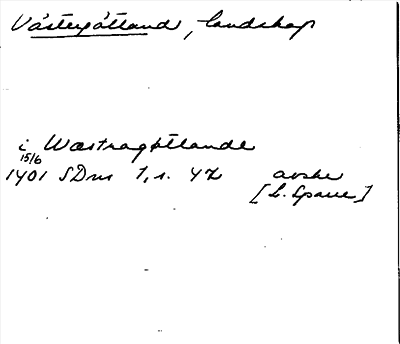 Västergötland, landskap
i Wæstragøtlande
15/6
1401 SDns 1, s. 42 avskr
[L. Sparre]